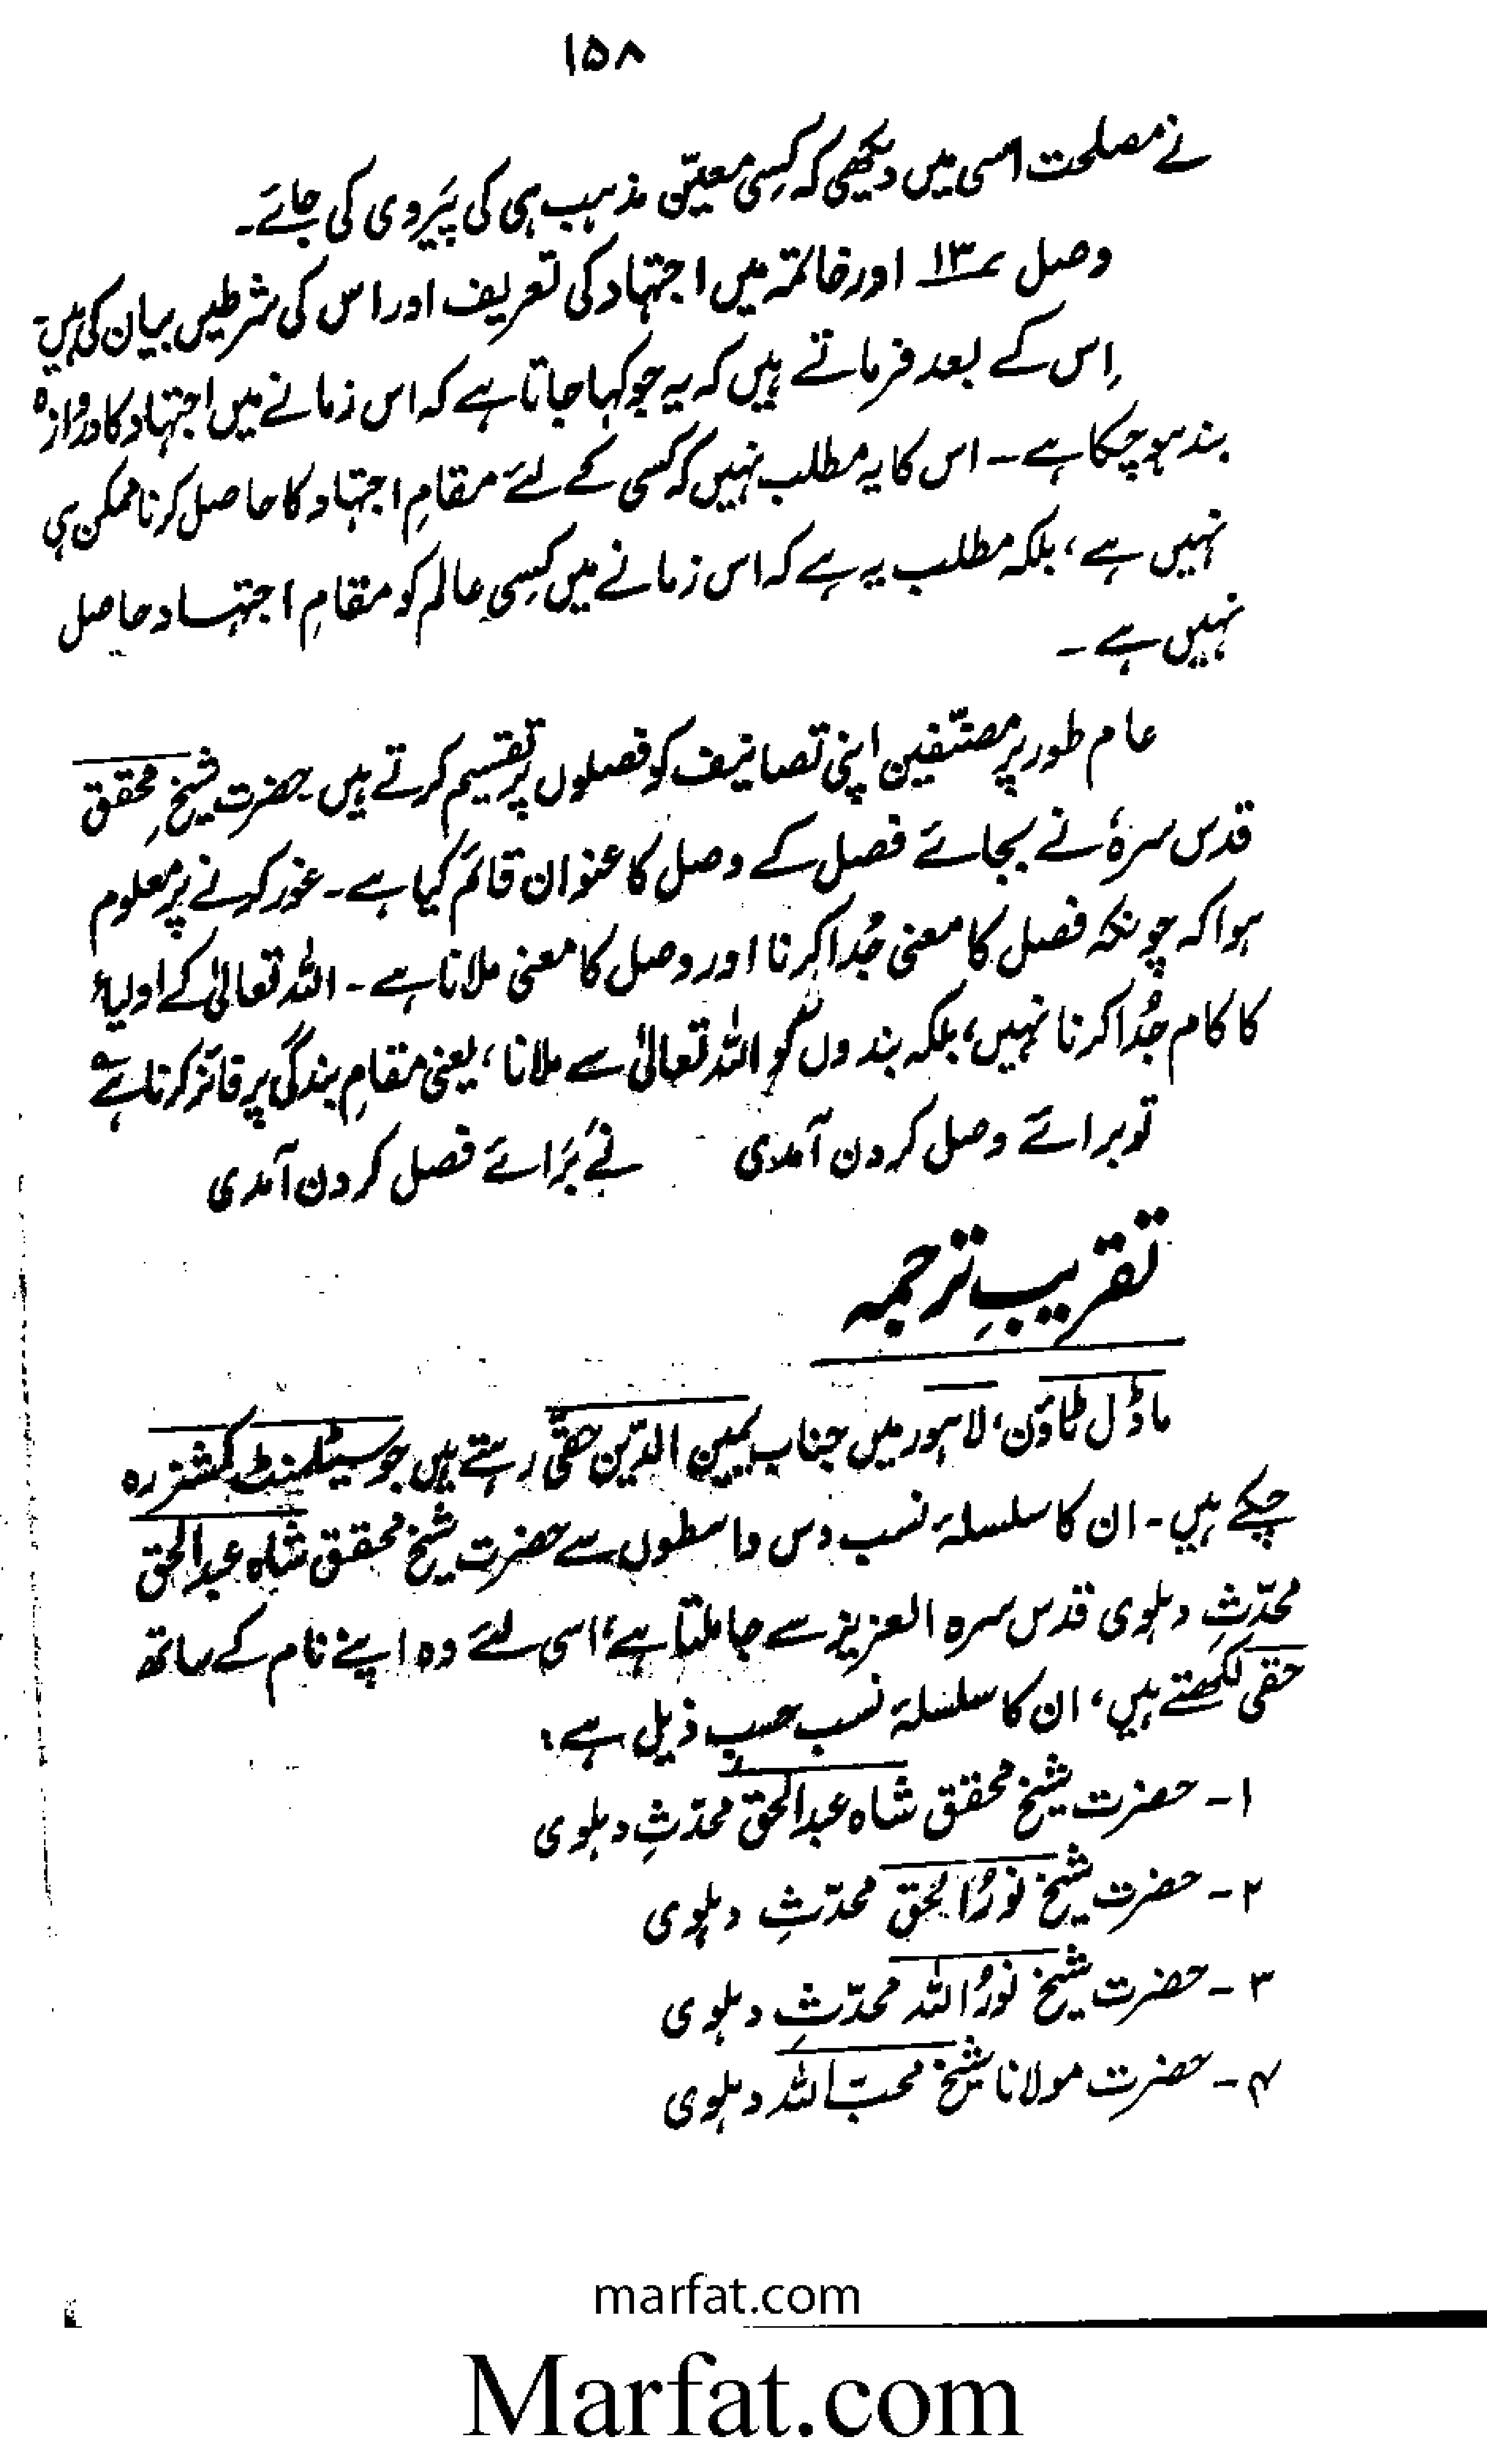 ۱۵۸
نے مصلحت اسی میں دیکھی کہ کسِی معیّن مذہب ہی کی پَیروی کی جائے۔
وصل ۱۳ اور خاتمہ میں اجتہاد کی تعریف اور اس کی شرطیں بیان کی ہیں۔
اِس کے بعد فرماتے ہیں کہ یہ جو کہا جاتا ہے کہ اس زمانے میں اجتہاد کا دروازہ
بند ہو چکا ہے۔ اس کا یہ مطلب نہیں کہ کسی کے لئے مقامِ اجتہاد کا حاصل کرنا ممکن ہی
نہیں ہے، بلکہ مطلب یہ ہے کہ اس زمانے میں کسِی عالم کو مقامِ اجتہاد حاصل
نہیں ہے۔
عام طور پر مصنّفین اپنی تصانیف کو فصلوں پر تقسیم کرتے ہیں حضرت شیخِ محقق
قدس سرہٗ نے بجائے فصل کے وصل کا عنوان قائم کیا ہے۔ غور کرنے پر معلوم
ہوا کہ چونکہ فصل کا معنی جُدا کرنا اور وصل کا معنی ملانا ہے۔ اللہ تعالیٰ کے اولیاء
کا کام جُدا کرنا نہیں، بلکہ بندوں کو اللہ تعالیٰ سے ملانا، یعنی مقامِ بندگی پر فائز کرنا ہے
تو برائے وصل کردن آمدی نے بَرائے فصل کردن آمدی
تقریبِ ترجمہ
ماڈل ٹاؤن، لاہور میں جناب یمین الدّین حقّی رہتے ہیں جو سیٹلمنٹ کمشنر رہ
چکے ہیں۔ ان کا سلسلۂ نسب دس واسطوں سے حضرت شیخ محقق شاہ عبدالحق
محدّثِ دہلوی قدس سرہ العزیز سے جا ملتا ہے، اسی لئے وہ اپنے نام کے ساتھ
حقی لکھتے ہیں، ان کا سلسلۂ نسب حسبِ ذیل ہے:
۱۔ حضرت شیخ محقق شاہ عبدالحق محدّثِ دہلوی
۲۔ حضرت شیخ نورُ الحق محدّثِ دہلوی
۳۔ حضرت شیخ نورُ اللہ محدّثِ دہلوی
۴۔ حضرتِ مولانا شیخ محبّ اللہ دہلوی
marfat.com
Marfat.com